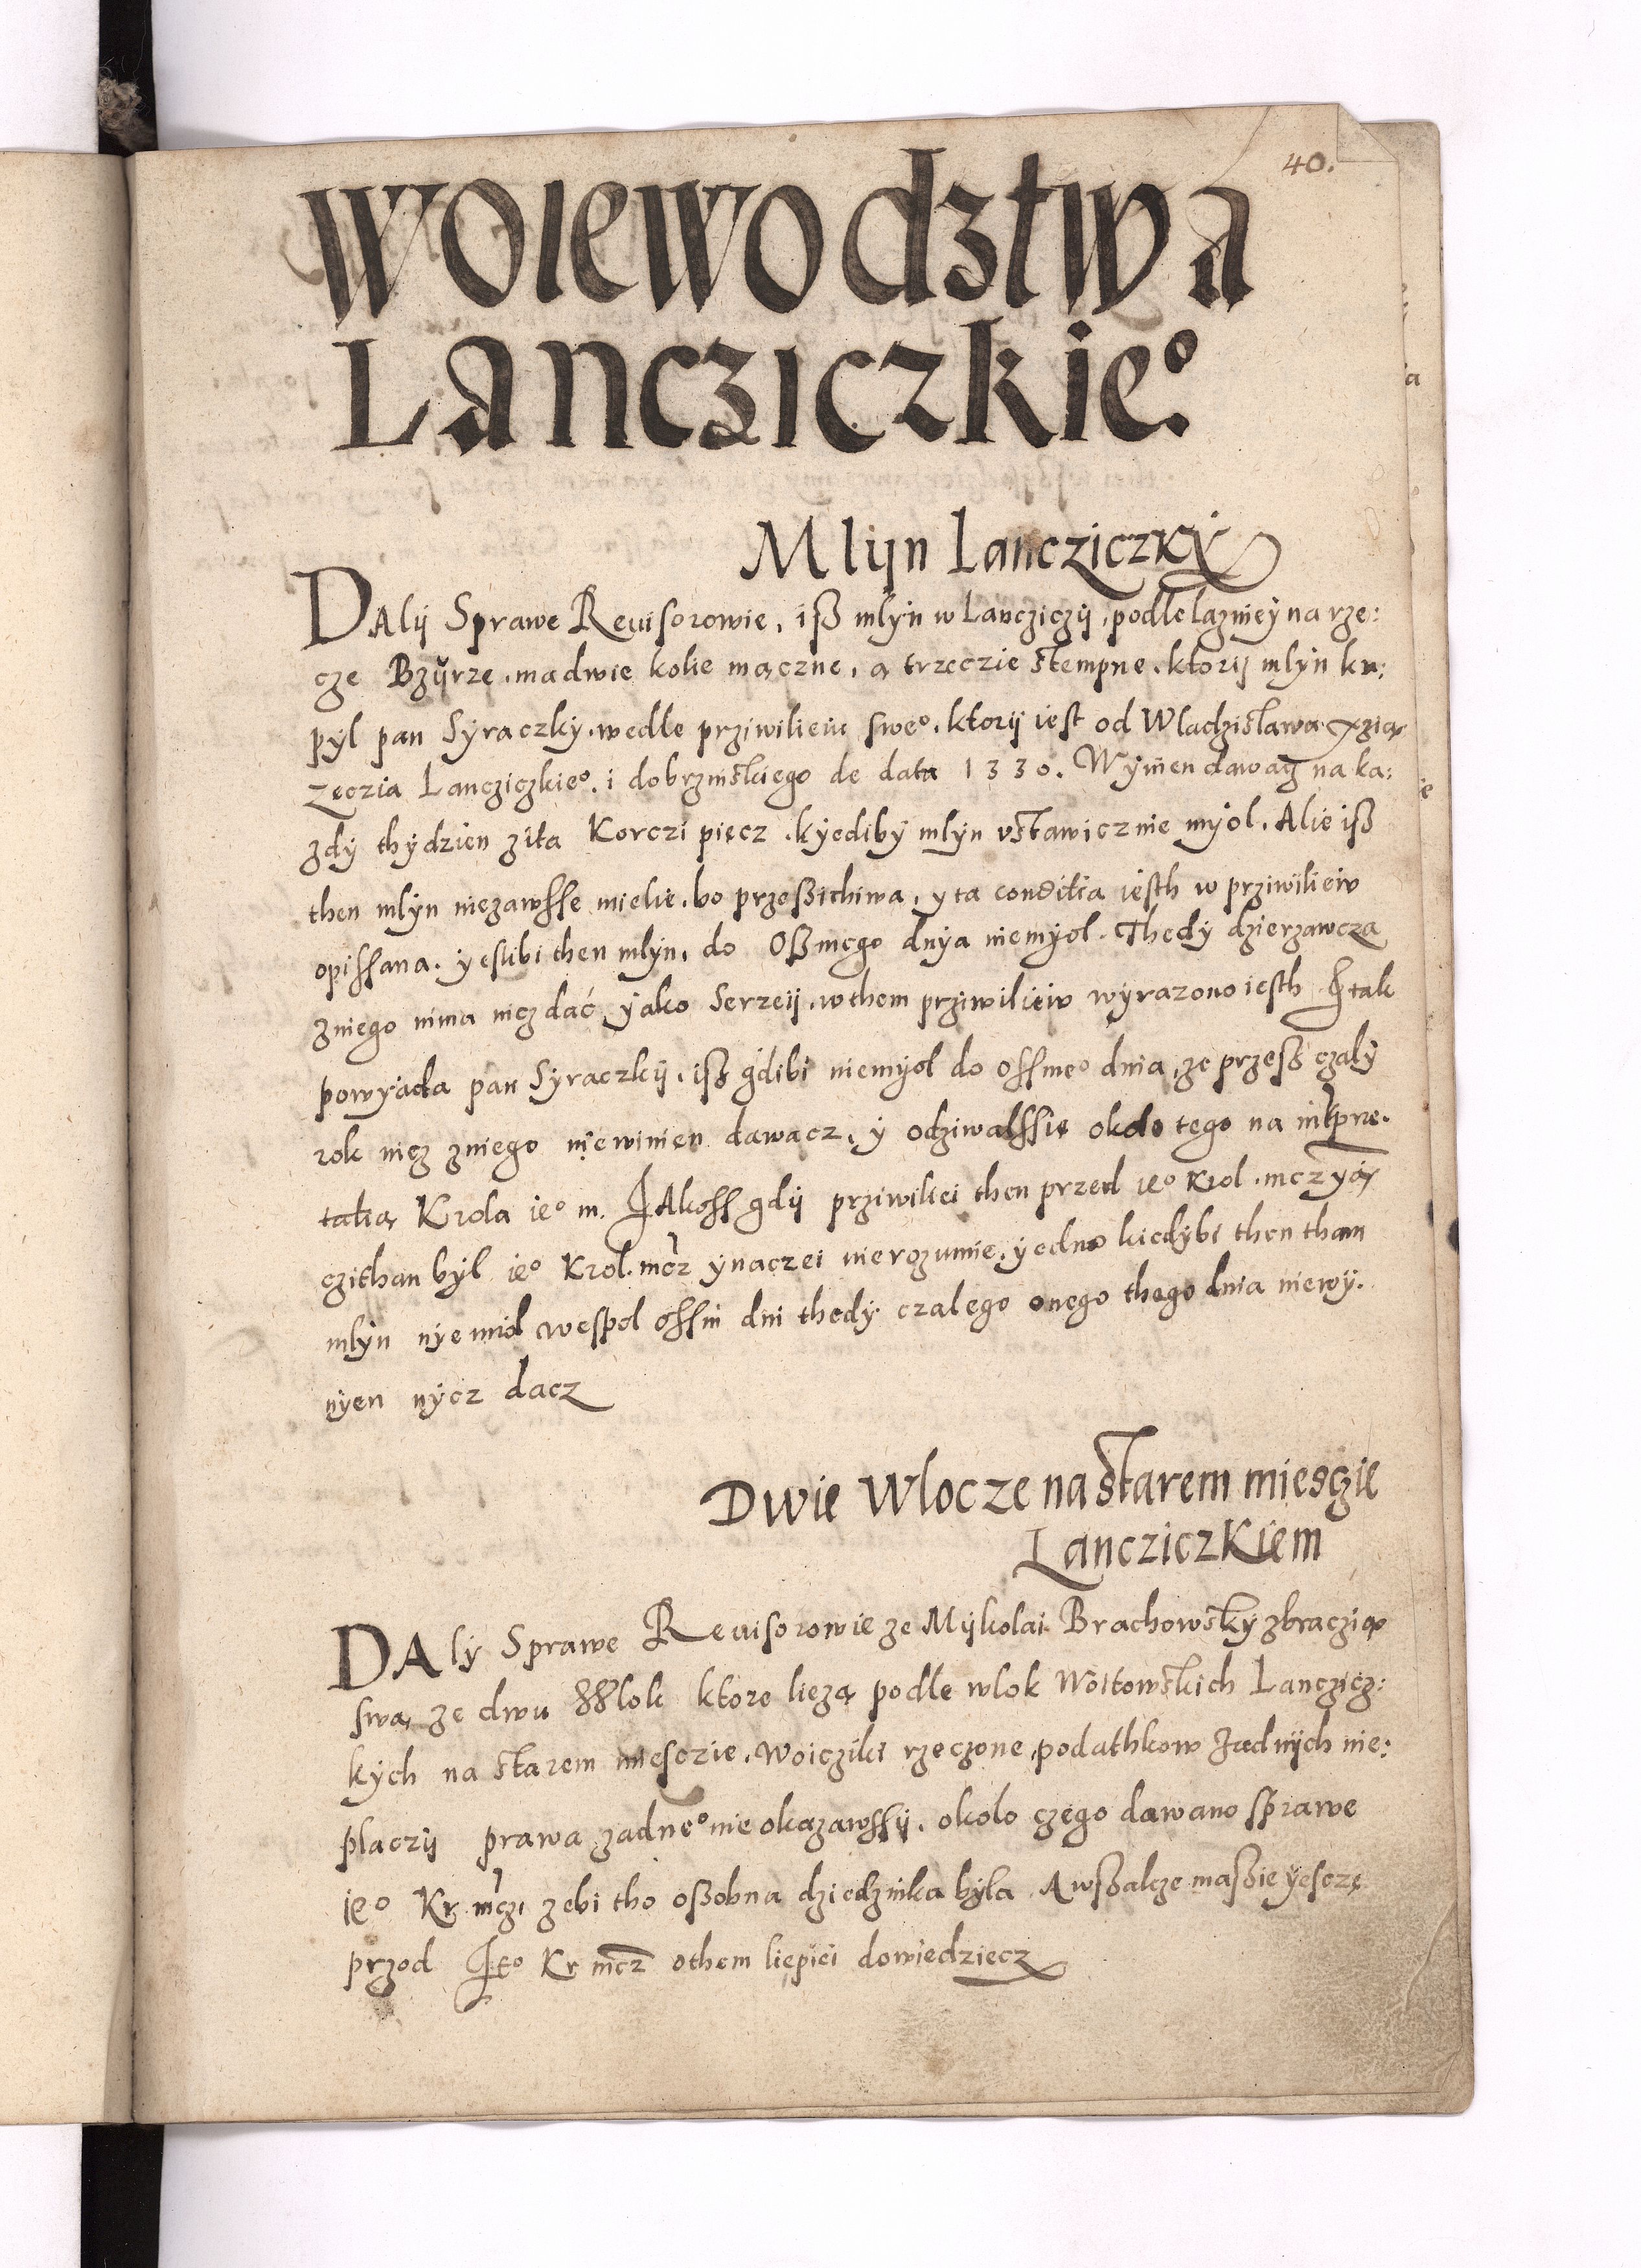 40.
Woiewodztwa
Lancziczkieº.
Mlijn Lancziczky
DAlij Sprawe Reuisorowie, iß młÿn w Lancziczÿ, podle lazniеÿ na rze:
cze Bzŭrze. ma dwie kolie mączne, a trzeczie stempne. ktorij młÿn ku:
pÿl pan Sÿraczkÿ. wedle prziwilieiu sweº. ktorij iest od Wladzislawa xzią
zeczia Lancziczkieº. i dobrzinskiego de data 1330. Wÿnien dawacz na ka:
zdÿ thÿdzien zita Korczi piecz. kÿedibÿ młÿn vstawicznie mÿol. Alie iß
then młÿn niezawsse mielie. bo przeßichiwa, y ta conditia iesth w prziwilieiv
opissana. ÿeslibi then młÿn, do Oßmego dnÿa niemÿol. Thedÿ dzierzawcza
zniego nima nicz dać, ÿako Serzeij. wthem prziwilieiv wÿrazono iesth Itak
powÿada pan Sÿraczkij. isz gdibi niemÿol do Ossmeº dnia, ze przesz czalÿ
rok nicz zniego niewinien dawacz, ÿ odziwalssie okolo tego na intpre.
tatią Krola ieº m. IAkoss gdij prziwiliei then przed ieº Krol. mczÿą
czithan bÿl ieº Krol. mcz ÿnaczei nierozumie. ÿedno kiedÿbi then tham
młÿn nÿemiol wespol ossm dni thedÿ czalego onego thego dnia niewÿ.
nÿen nÿcz dacz
Dwie Wlocze na starem miesczie
Lancziczkiem
DAlÿ Sprawe Reuisorowie ze Mÿkolai Brachowskÿ zbraczią
swą, ze dwu Wlok ktore lieżą podle wlok Woitowskich Lanczicz:
kÿch na starem miesczie. Woicziki rzeczone, podathkow zadnÿch nie:
placzij prawa zadneº nie okazawssÿ. okolo czego dawano sprawe
ieº Kr. mczi zebi tho oßobna dziedzinka bÿla. A wßakze maßie ÿescze
przod Ieº Kr mcz othem liepiei dowiedziecz